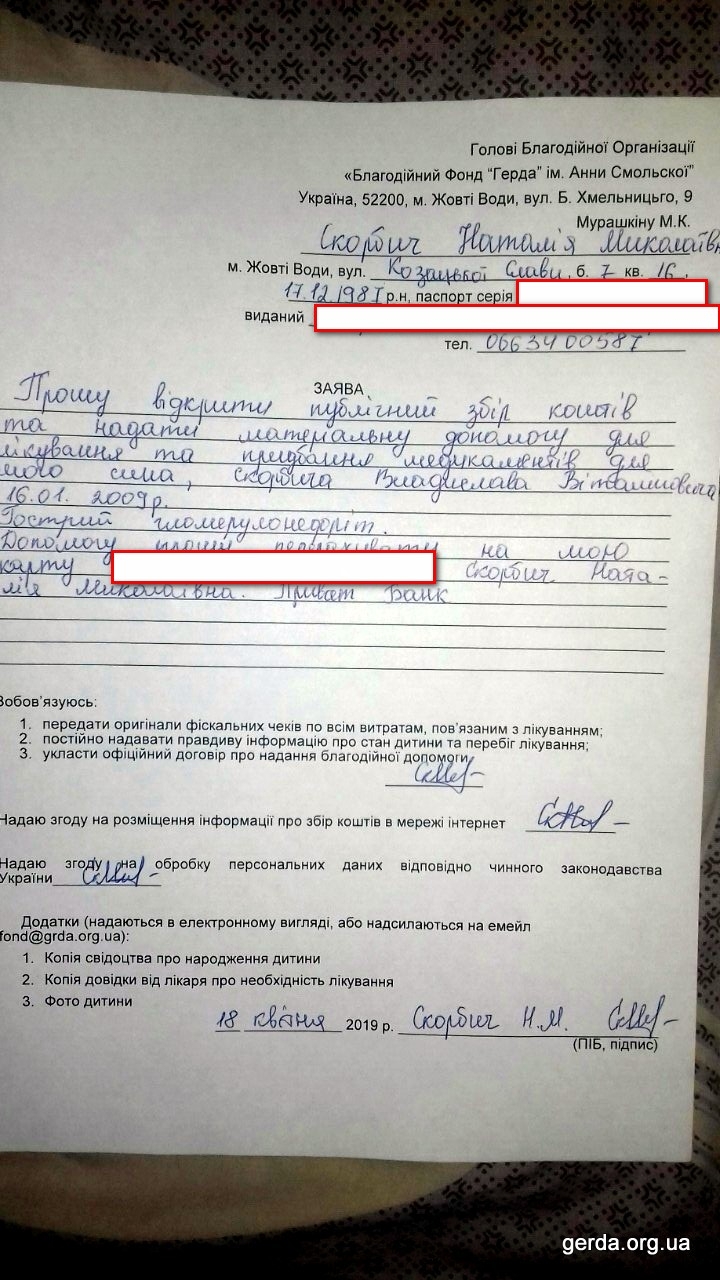 Голові Благодійної Організації
«Благодійний Фонд “Герда” ім. Анни Смольскої”
Україна, 52200, м. Жовті Води, вул. Б. Хмельницьго, 9
Мурашкіну М.К.
Скорбич Наталія Миколаївн
м. Жовті Води, вул. Козацької Слави, б. 7 кв. 16.
17.12.1987 р.н, паспорт серія
виданий
тел. 0663400587
ЗАЯВА
Прошу відкрити публічний збір коштів
та надати матеріальну допомогу для
лікування та придбання медикаментів для
мого сина, Скорбича Владислава Віталійовича,
16.01. 2009р.
Гострий гломерулонефріт.
Допомогу прошу перераховувати на мою
карту Скорбич Ната-
лія Миколаївна. Приват Банк
Зобов’язуюсь:
1. передати оригінали фіскальних чеків по всім витратам, пов’язаним з лікуванням;
2. постійно надавати правдиву інформацію про стан дитини та перебіг лікування;
3. укласти офіційний договір про надання благодійної допомоги
Надаю згоду на розміщення інформації про збір коштів в мережі інтернет
Надаю згоду на обробку персональних даних відповідно чинного законодавства
України
Додатки (надаються в електронному вигляді, або надсилаються на емейл
fond@grda.org.ua):
1. Копія свідоцтва про народження дитини
2. Копія довідки від лікаря про необхідність лікування
3. Фото дитини
18 квітня 2019 р. Скорбич Н.М.
(ПІБ, підпис)
gerda.org.ua